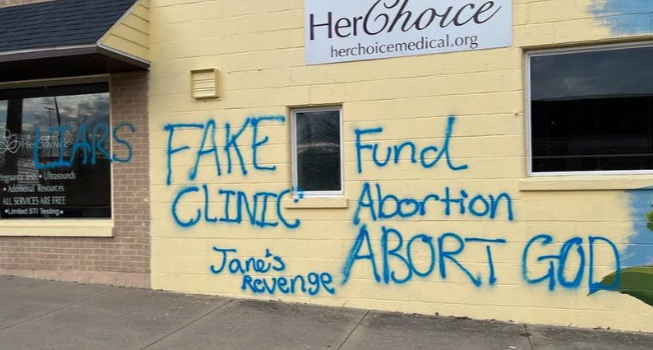 HerChoice
herchoicemedical.org
HerChoice
LIARS
Pregnancy Tests • Ultrasounds
• Additional Resources
ALL SERVICES ARE FREE
•Limited STI Testing•
FAKE
CLINIC
Jane's
Revenge
Fund
Abortion
ABORT GOD